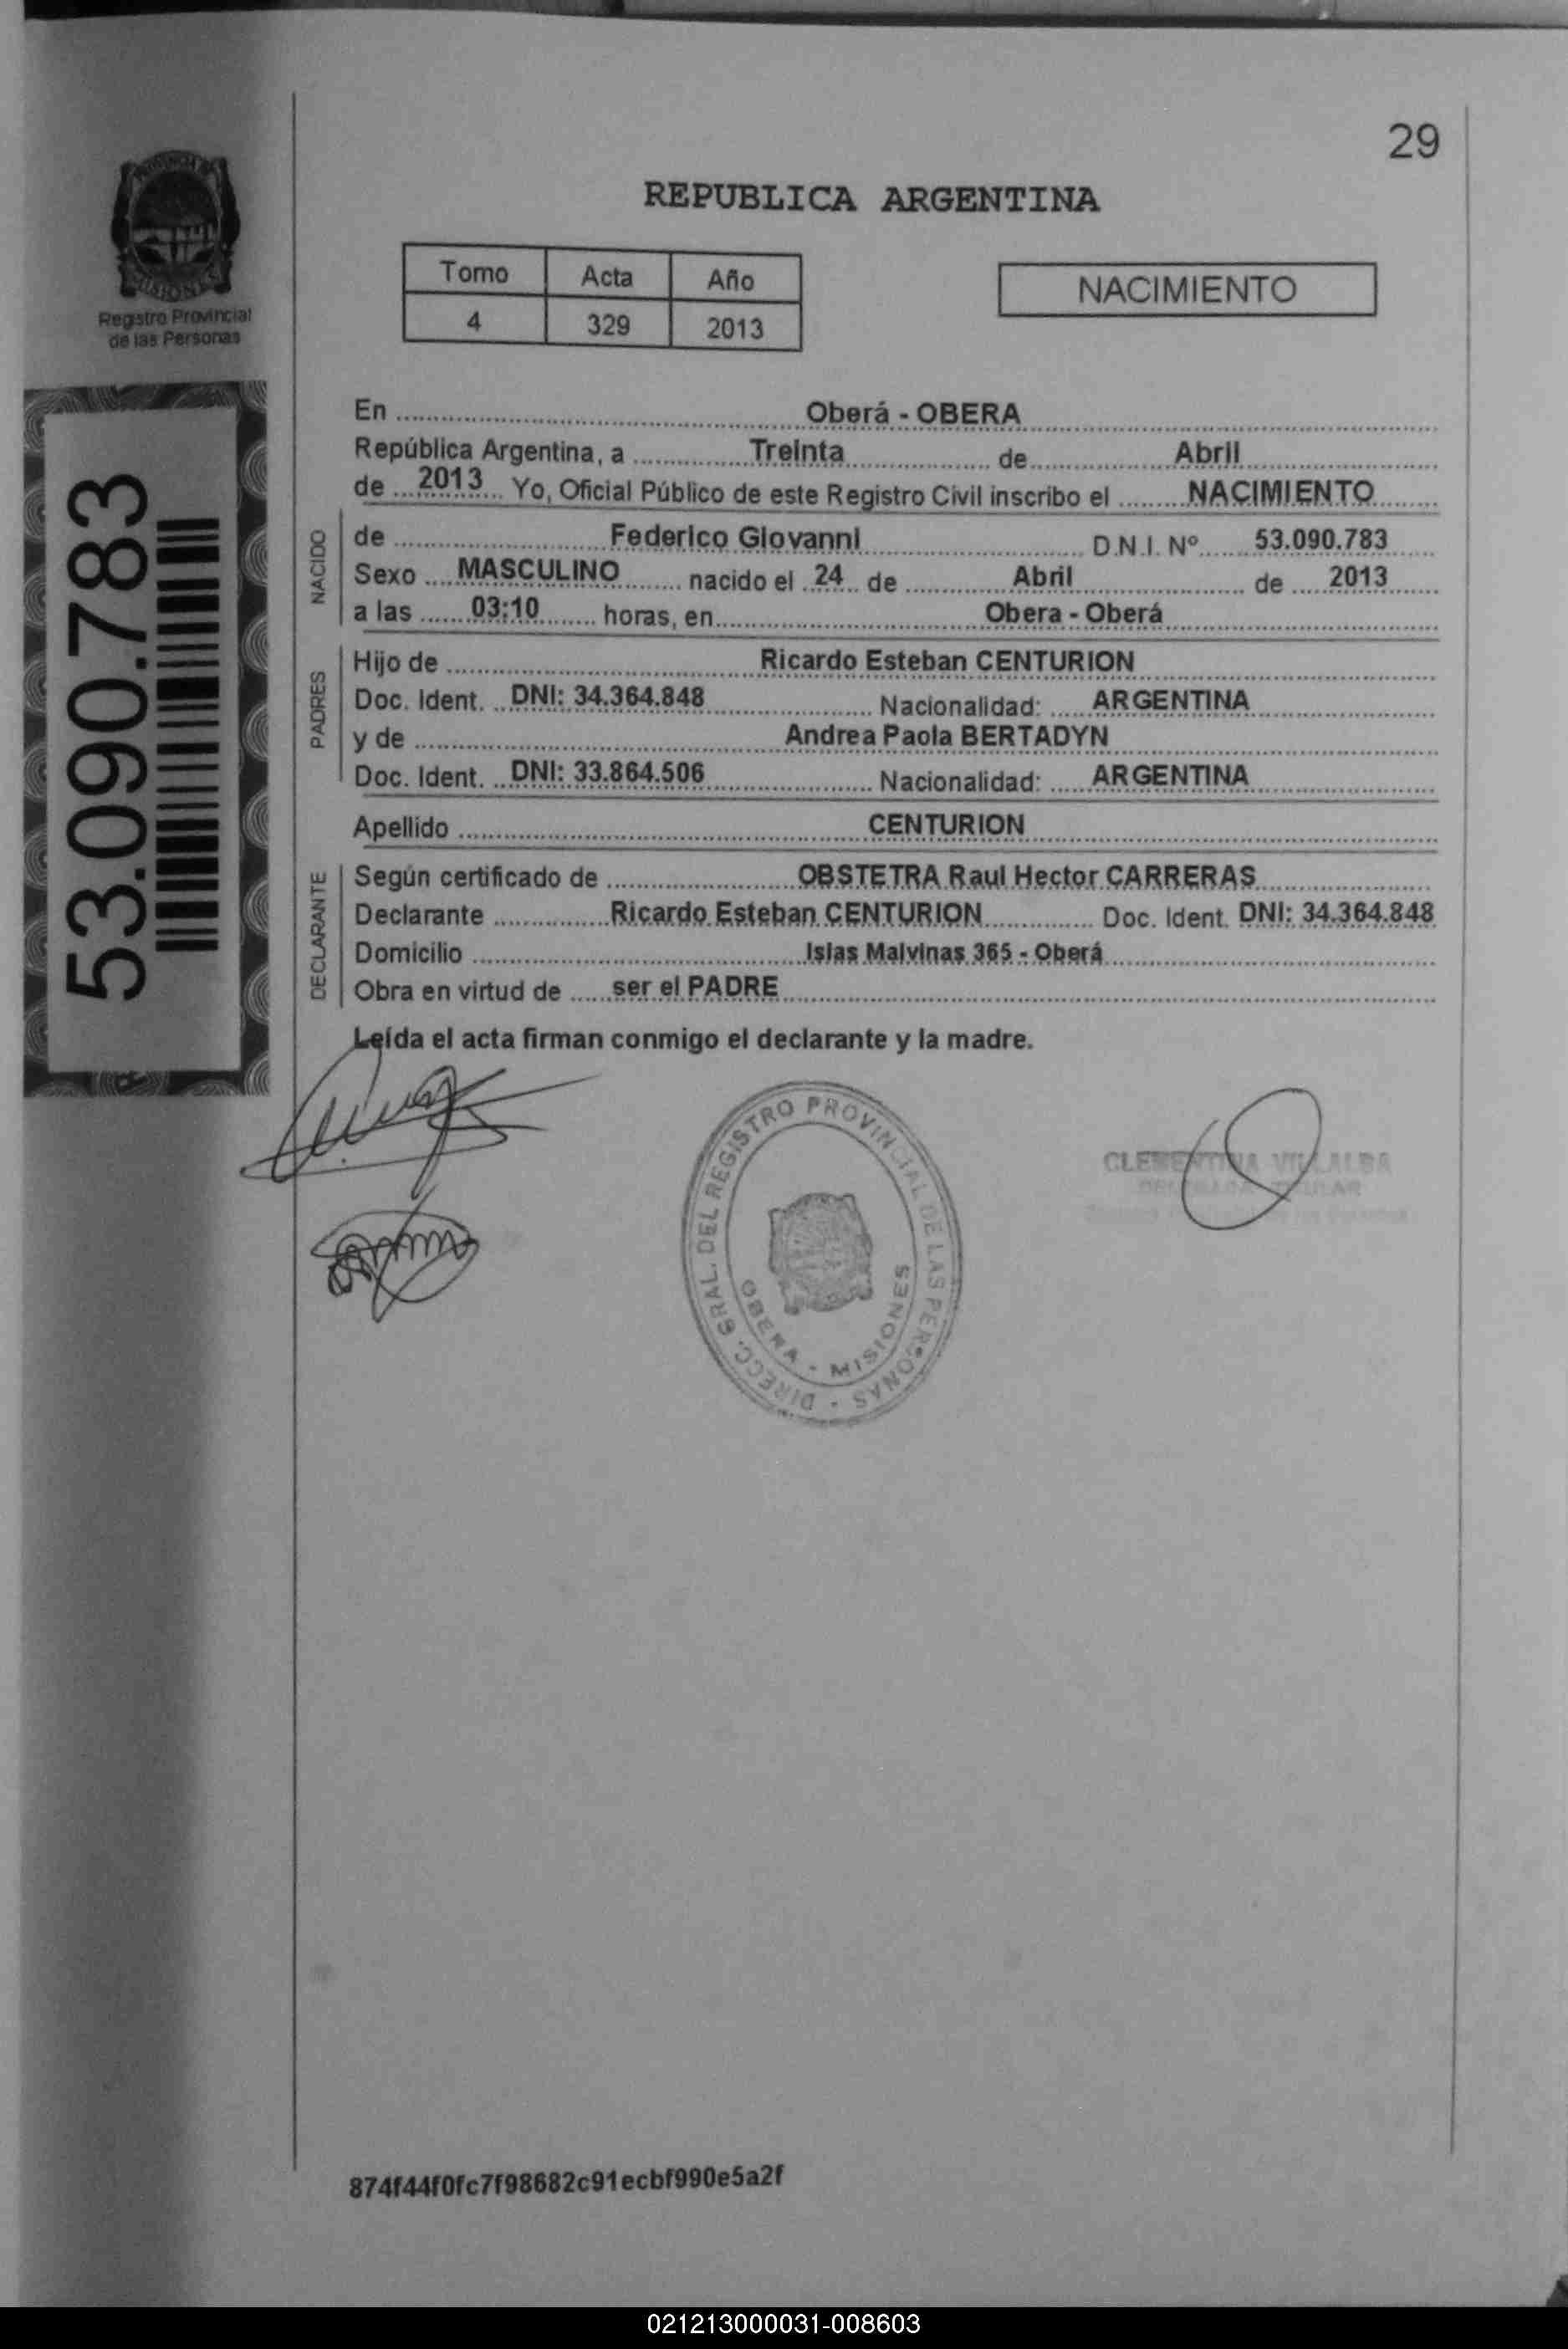 29
REPUBLICA ARGENTINA
PROVINCIA DE
MISIONES
Registro Provincial
de las Personas
Tomo Acta Año
4 329 2013
NACIMIENTO
53.090.783
En Oberá - OBERA
República Argentina, a Treinta de Abril
de 2013 Yo, Oficial Público de este Registro Civil inscribo el NACIMIENTO
NACIDO
de Federico Giovanni D.N.I. Nº 53.090.783
Sexo MASCULINO nacido el 24 de Abril de 2013
a las 03:10 horas, en Obera - Oberá
PADRES
Hijo de Ricardo Esteban CENTURION
Doc. Ident. DNI: 34.364.848 Nacionalidad: ARGENTINA
y de Andrea Paola BERTADYN
Doc. Ident. DNI: 33.864.506 Nacionalidad: ARGENTINA
Apellido CENTURION
DECLARANTE
Según certificado de OBSTETRA Raul Hector CARRERAS
Declarante Ricardo Esteban CENTURION Doc. Ident. DNI: 34.364.848
Domicilio Islas Malvinas 365 - Oberá
Obra en virtud de ser el PADRE
Leída el acta firman conmigo el declarante y la madre.
DIRECC. GRAL. DEL REGISTRO PROVINCIAL DE LAS PERSONAS
OBERA - MISIONES
CLEMENTINA VILLALBA
874f44f0fc7f98682c91ecbf990e5a2f
021213000031-008603